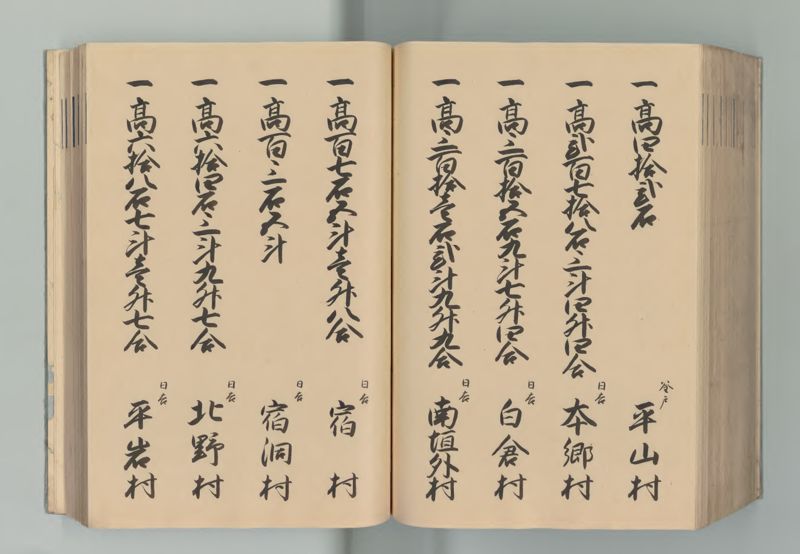 一 高四拾弐石 釜戸 平山村
一 高弐百七拾八石三斗四升四合 日吉 本郷村
一 高三百拾五石九斗七升四合 日吉 白倉村
一 高三百拾壱石弐斗九升九合 日吉 南垣外村
一 高百七石五斗壱升八合 日吉 宿村
一 高百三石五斗 日吉 宿洞村
一 高六拾四石三斗九升七合 日吉 北野村
一 高六拾八石七斗壱升七合 日吉 平岩村